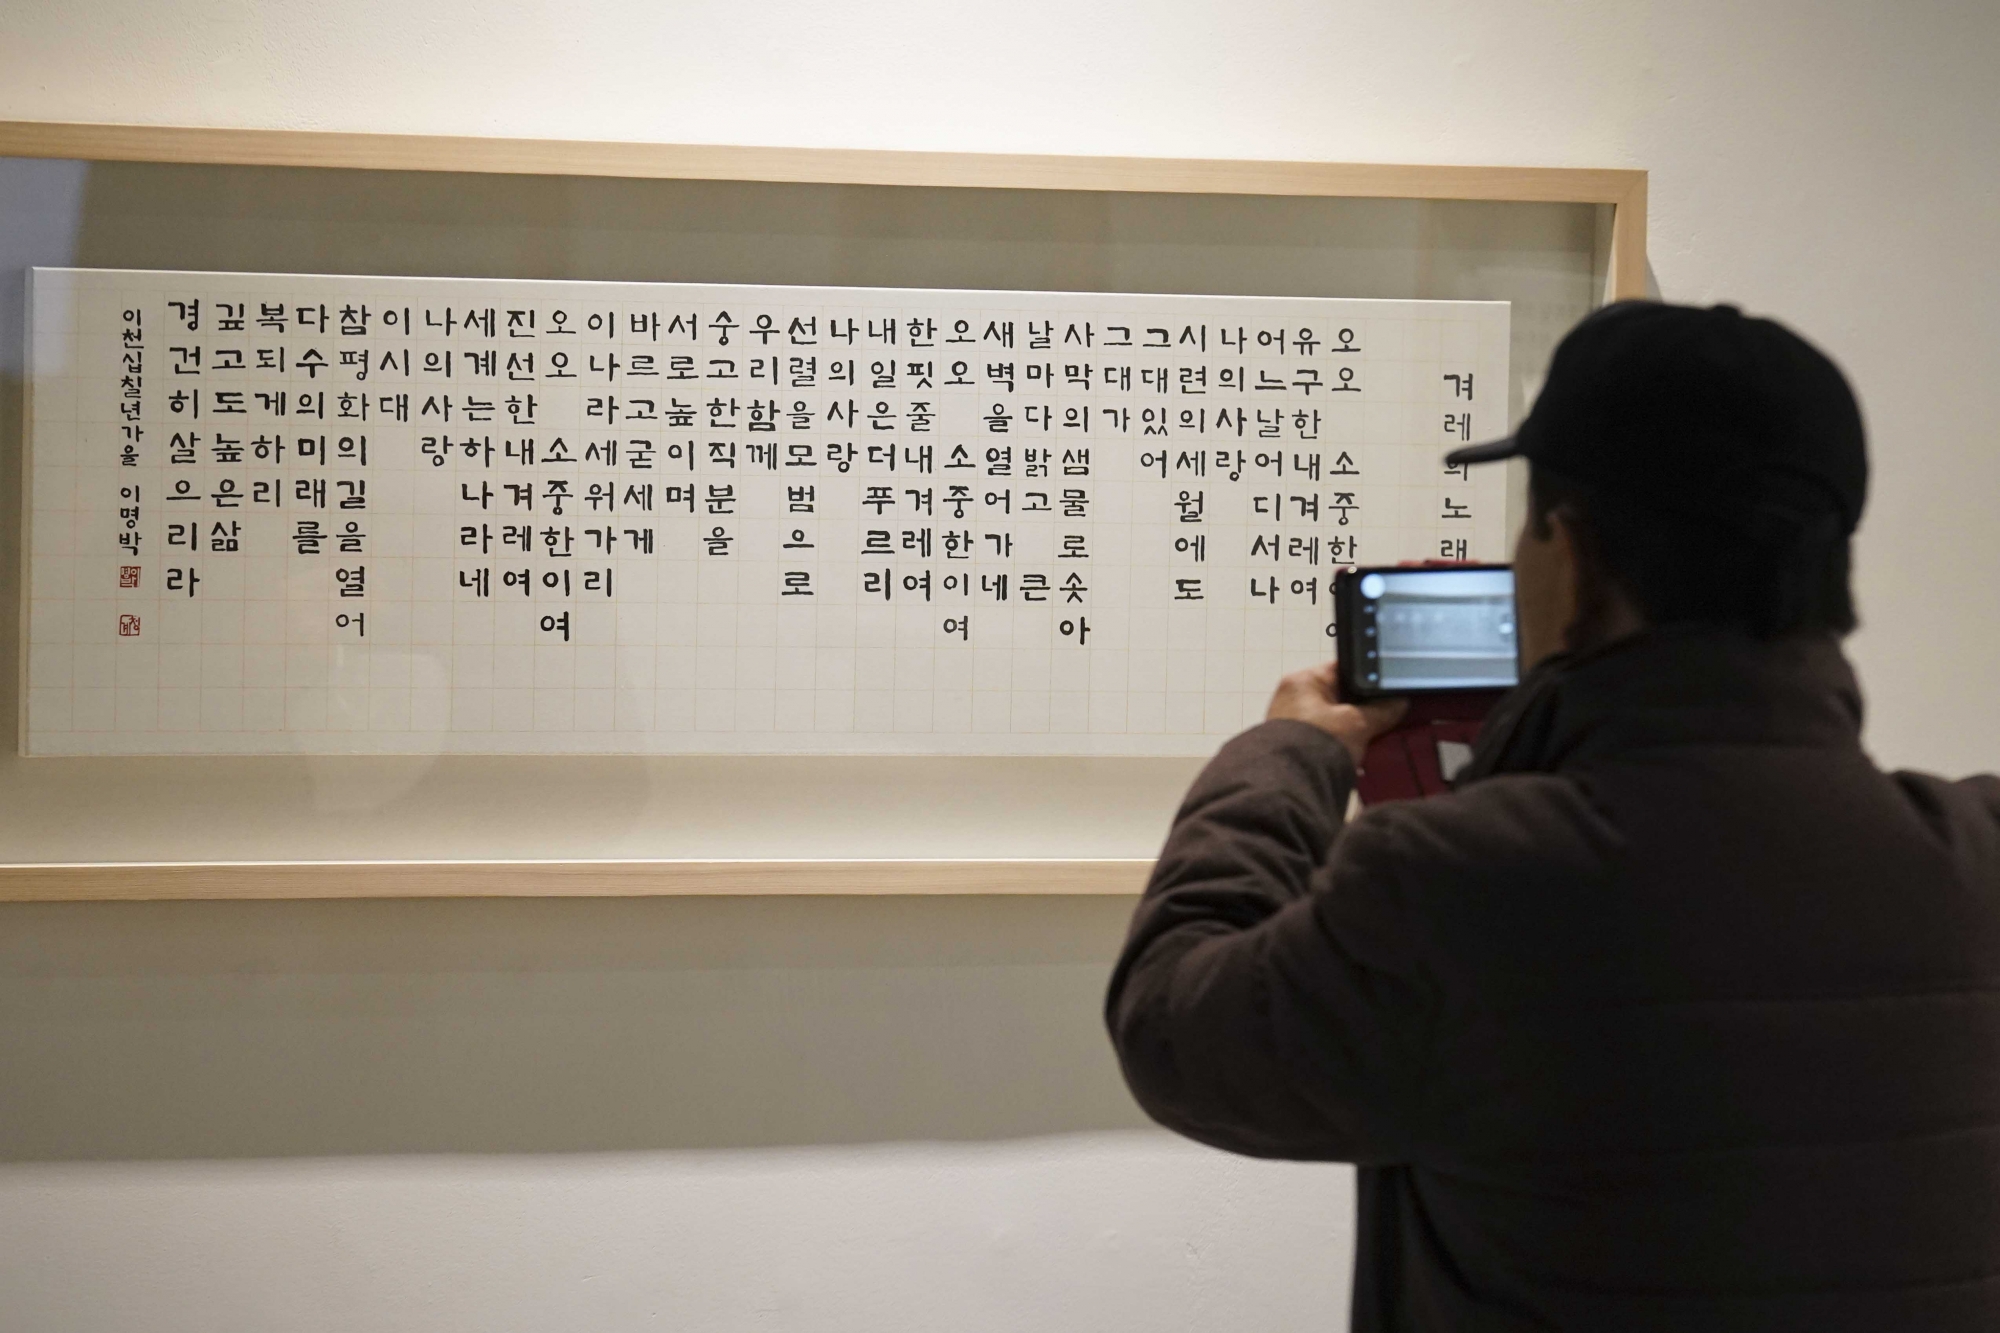 겨레의노래
오오 소중한이여
유구한내겨레여
어느날어디서나
나의사랑
시련의세월에도
그대있어
그대가
사막의샘물로솟아
날마다밝고 큰
새벽을열어가네
오오 소중한이여
한핏줄내겨레여
내일은더푸르리
나의사랑
선렬을모범으로
우리함께
숭고한직분을
서로높이며
바르고굳세게
이나라세위가리
오오 소중한이여
진선한내겨레여
세계는하나라네
나의사랑
이시대
참평화의길을열어
다수의미래를
복되게하리
깊고도높은삶
경건히살으리라
이천십칠년가을 이명박